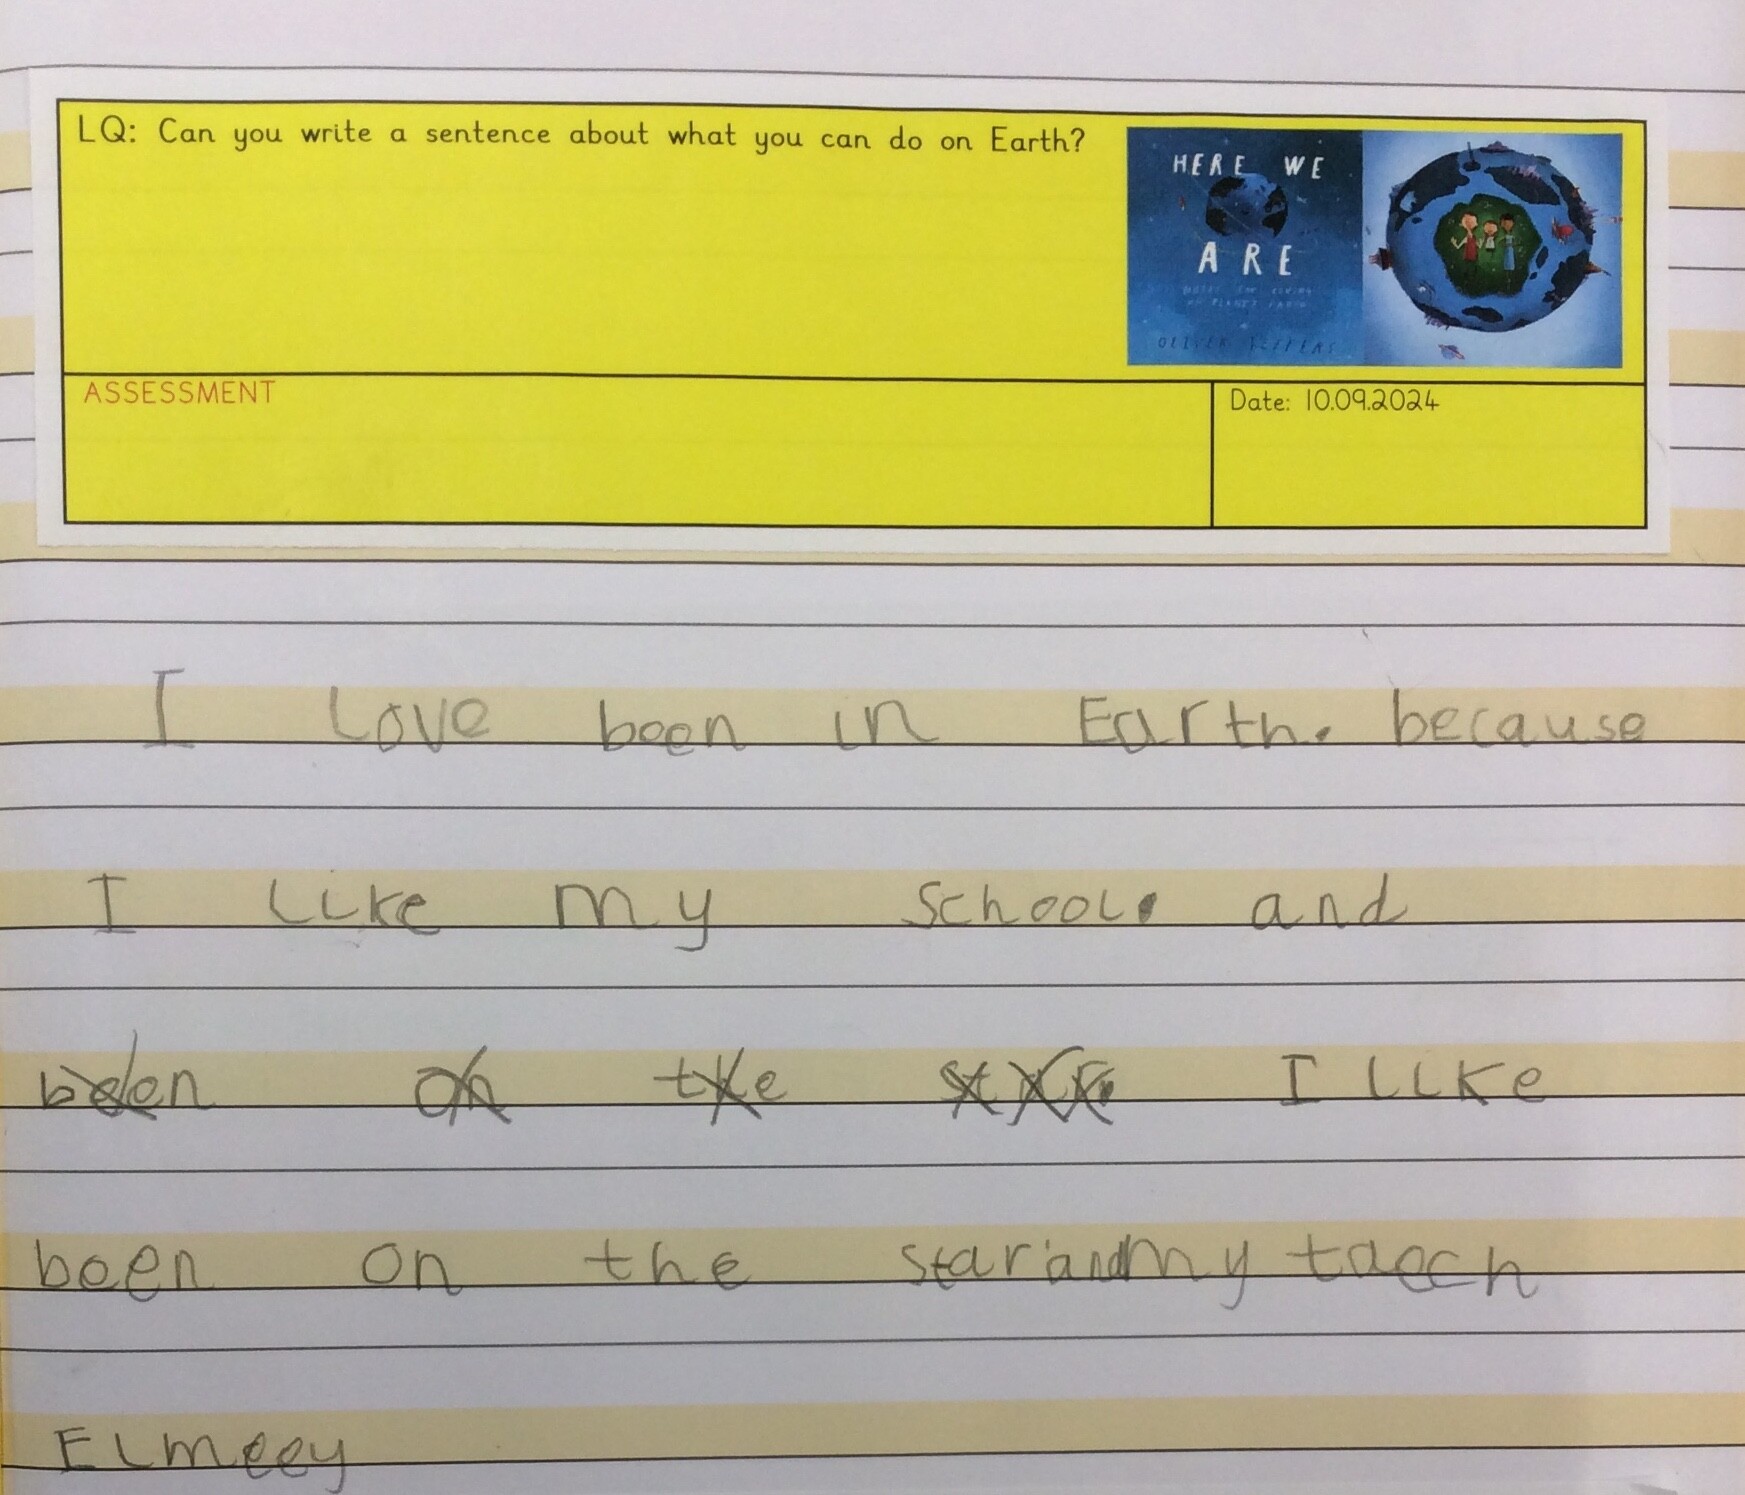 LQ: Can you write a sentence about what you can do on Earth?
HERE WE
ARE
OLIVER JEFFERS
ASSESSMENT
Date: 10.09.2024
I Love been in Earth. because
I like my school. and
been on the star. I like
been on the star and my taech
Elmeey